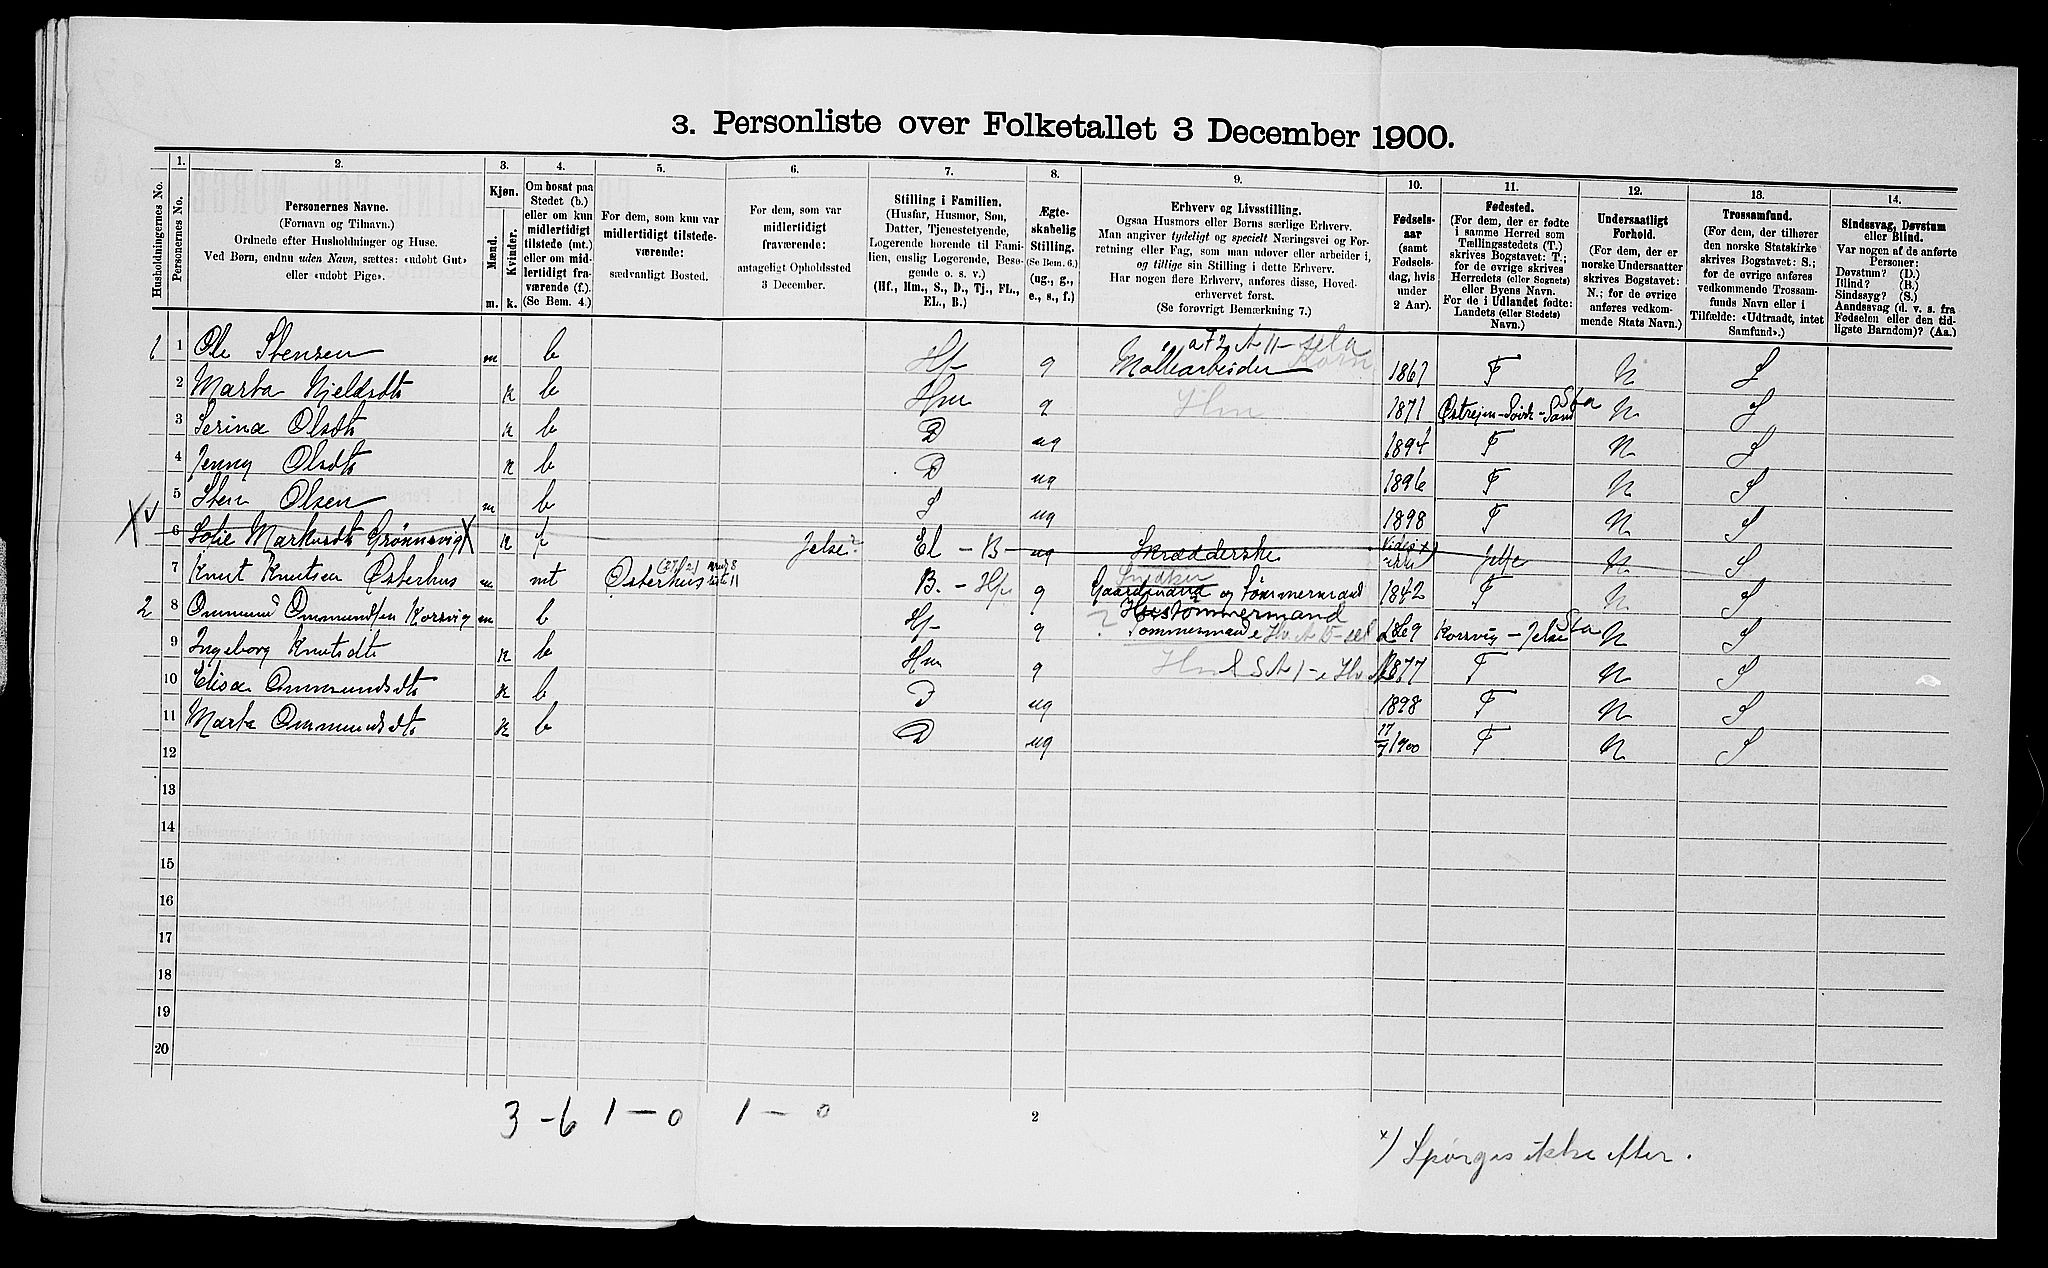 3. Personliste over Folketallet 3 December 1900.
1. 2. 3. 4. 5. 6. 7. 8. 9. 10. 11. 12. 13. 14.
Husholdningernes No.
Personernes No.
Personernes Navne.
(Fornavn og Tilnavn.)
Ordnede efter Husholdninger og Huse.
Ved Børn, endnu uden Navn, sættes: «udøbt Gut»
eller «udøbt Pige».
Kjøn.
Mænd.
Kvinder.
m. k.
Om bosat paa
Stedet (b.)
eller om kun
midlertidigt
tilstede (mt.)
eller om mid-
lertidigt fra-
værende (f.).
(Se Bem. 4.)
For dem, som kun var
midlertidigt tilstede-
værende:
sædvanligt Bosted.
For dem, som var
midlertidigt
fraværende:
antageligt Opholdssted
3 December.
Stilling i Familien.
(Husfar, Husmor, Søn,
Datter, Tjenestetyende,
Logerende hørende til Fami-
lien, enslig Logerende, Besø-
gende o. s. v.)
(Hf., Hm., S., D., Tj., FL.,
EL., B.)
Ægte-
skabelig
Stilling.
(Se Bem. 6.)
(ug., g.,
e., s., f.)
Erhverv og Livsstilling.
Ogsaa Husmors eller Børns særlige Erhverv.
Man angiver tydeligt og specielt Næringsvei og For-
retning eller Fag, som man udøver eller arbeider i,
og tillige sin Stilling i dette Erhverv.
Har nogen flere Erhverv, anføres disse, Hoved-
erhvervet først.
(Se forøvrigt Bemærkning 7.)
Fødsels-
aar
(samt
Fødsels-
dag, hvis
under
2 Aar).
Fødested.
(For dem, der er fødte
i samme Herred som
Tællingsstedets (T.)
skrives Bogstavet: T.;
for de øvrige skrives
Herredets (eller Sognets)
eller Byens Navn.
For de i Udlandet fødte:
Landets (eller Stedets)
Navn.)
Undersaatligt
Forhold.
(For dem, der er
norske Undersaatter
skrives Bogstavet:
N.; for de øvrige
anføres vedkom-
mende Stats Navn.)
Trossamfund.
(For dem, der tilhører
den norske Statskirke
skrives Bogstavet: S.;
for de øvrige anføres
vedkommende Trossam-
funds Navn eller i
Tilfælde: «Udtraadt, intet
Samfund».)
Sindssvag, Døvstum
eller Blind.
Var nogen af de anførte
Personer:
Døvstum? (D.)
Blind? (B.)
Sindssyg? (S.)
Aandssvag (d. v. s. fra
Fødselen eller den tid-
ligste Barndom)? (Aa.)
1 1 Ole Stensen m b Hf g Møllearbeider Korn 1867 T N S
2 Marta Kjeldsdtr k b Hm g Hm 1871 N S
3 Serina Olsdtr k b D ug 1894 T N S
4 Jenny Olsdtr k b D ug 1896 T N S
5 Sten Olsen m b S ug 1898 T N S
6 Sofie Markusdtr Grønnevig k f Jelse? El - B - ug Skrædderske Vides ikke x) Jelse N S
7 Knut Knutsen Østerhus m mt Østerhus B. - Hf g Gaardmand og Tømmermand 1842 T N S
2 8 Ommund Ommundsen Korsvig m b Hf g Hustømmermand Tømmermand 1869 Korsvig - Jelse N S
9 Ingeborg Knutsdtr k b Hm g Hm 1877 T N S
10 Elisa Ommundsdtr k b D ug 1898 T N S
11 Marta Ommundsdtr k b D ug 17/7 1900 T N S
12
13
14
15
16
17
18
19
20
3 - 6 1 - 0 1 - 0
2
x) Spørges ikke efter.